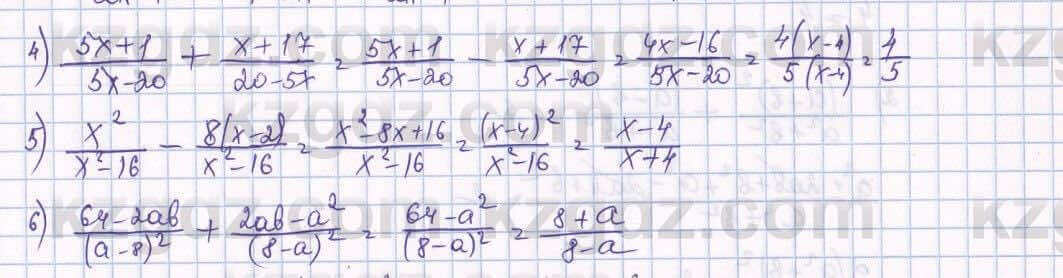 4) (5x+1)/(5x-20) + (x+17)/(20-5x) = (5x+1)/(5x-20) - (x+17)/(5x-20) = (4x-16)/(5x-20) = 4(x-4)/5(x-4) = 4/5
5) x²/(x²-16) - 8(x-2)/(x²-16) = (x²-8x+16)/(x²-16) = (x-4)²/(x²-16) = (x-4)/(x+4)
6) (64-2ab)/(a-8)² + (2ab-a²)/(8-a)² = (64-a²)/(8-a)² = (8+a)/(8-a)